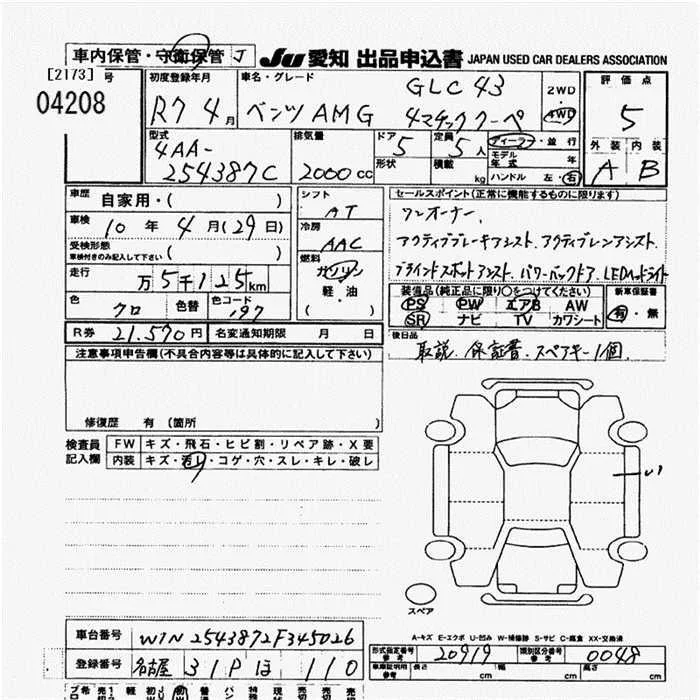 車内保管・守衛保管 J JU 愛知 出品申込書 JAPAN USED CAR DEALERS ASSOCIATION
[2173] 号
04208
初度登録年月 R7 4月
車名・グレード GLC 43
ベンツAMG 4マチッククーペ
2WD・4WD
評価点 5
外装 内装
A B
型式 4AA-254387C
排気量 2000cc
ドア 5 形状
定員 5人 積載 kg
ディーラー・並行
モデル年式 年
ハンドル 左・右
車歴 自家用・( )
車検 10年 4月(29日)
受検形態 車検付きのみ記入して下さい ( )
走行 万5千125km
色 クロ 色替 色コード 197
R券 21,570円 名変通知期限 月 日
シフト AT
冷房 AAC
燃料 ガソリン 軽油・( )
セールスポイント(正常に機能するものに限ります)
ワンオーナー、
アクティブブレーキアシスト、アクティブレンアシスト、
ブラインドスポットアシスト、パワーバックドア、LEDヘッドライト
装備品(純正品に限り○をつけてください) 新車保証書
PS PW エアB AW 有・無
SR ナビ TV カワシート
後日品 取説、保証書、スペアキー1個、
注意事項申告欄(不具合内容等は具体的に記入して下さい)
修復歴 有 (箇所 )
検査員記入欄 FW キズ・飛石・ヒビ割・リペア跡・X要
内装 キズ・汚れ・コゲ・穴・スレ・キレ・破レ
スペア
A-キズ E-エクボ U-凹み W-補修跡 S-サビ C-腐食 XX-交換済
車台番号 W1N2543872F345026
登録番号 名古屋 31P ほ 110
形式指定番号 参考 20919 類別区分番号 参考 0048
車車証明用 参考 長さ cm 幅 cm 高さ cm